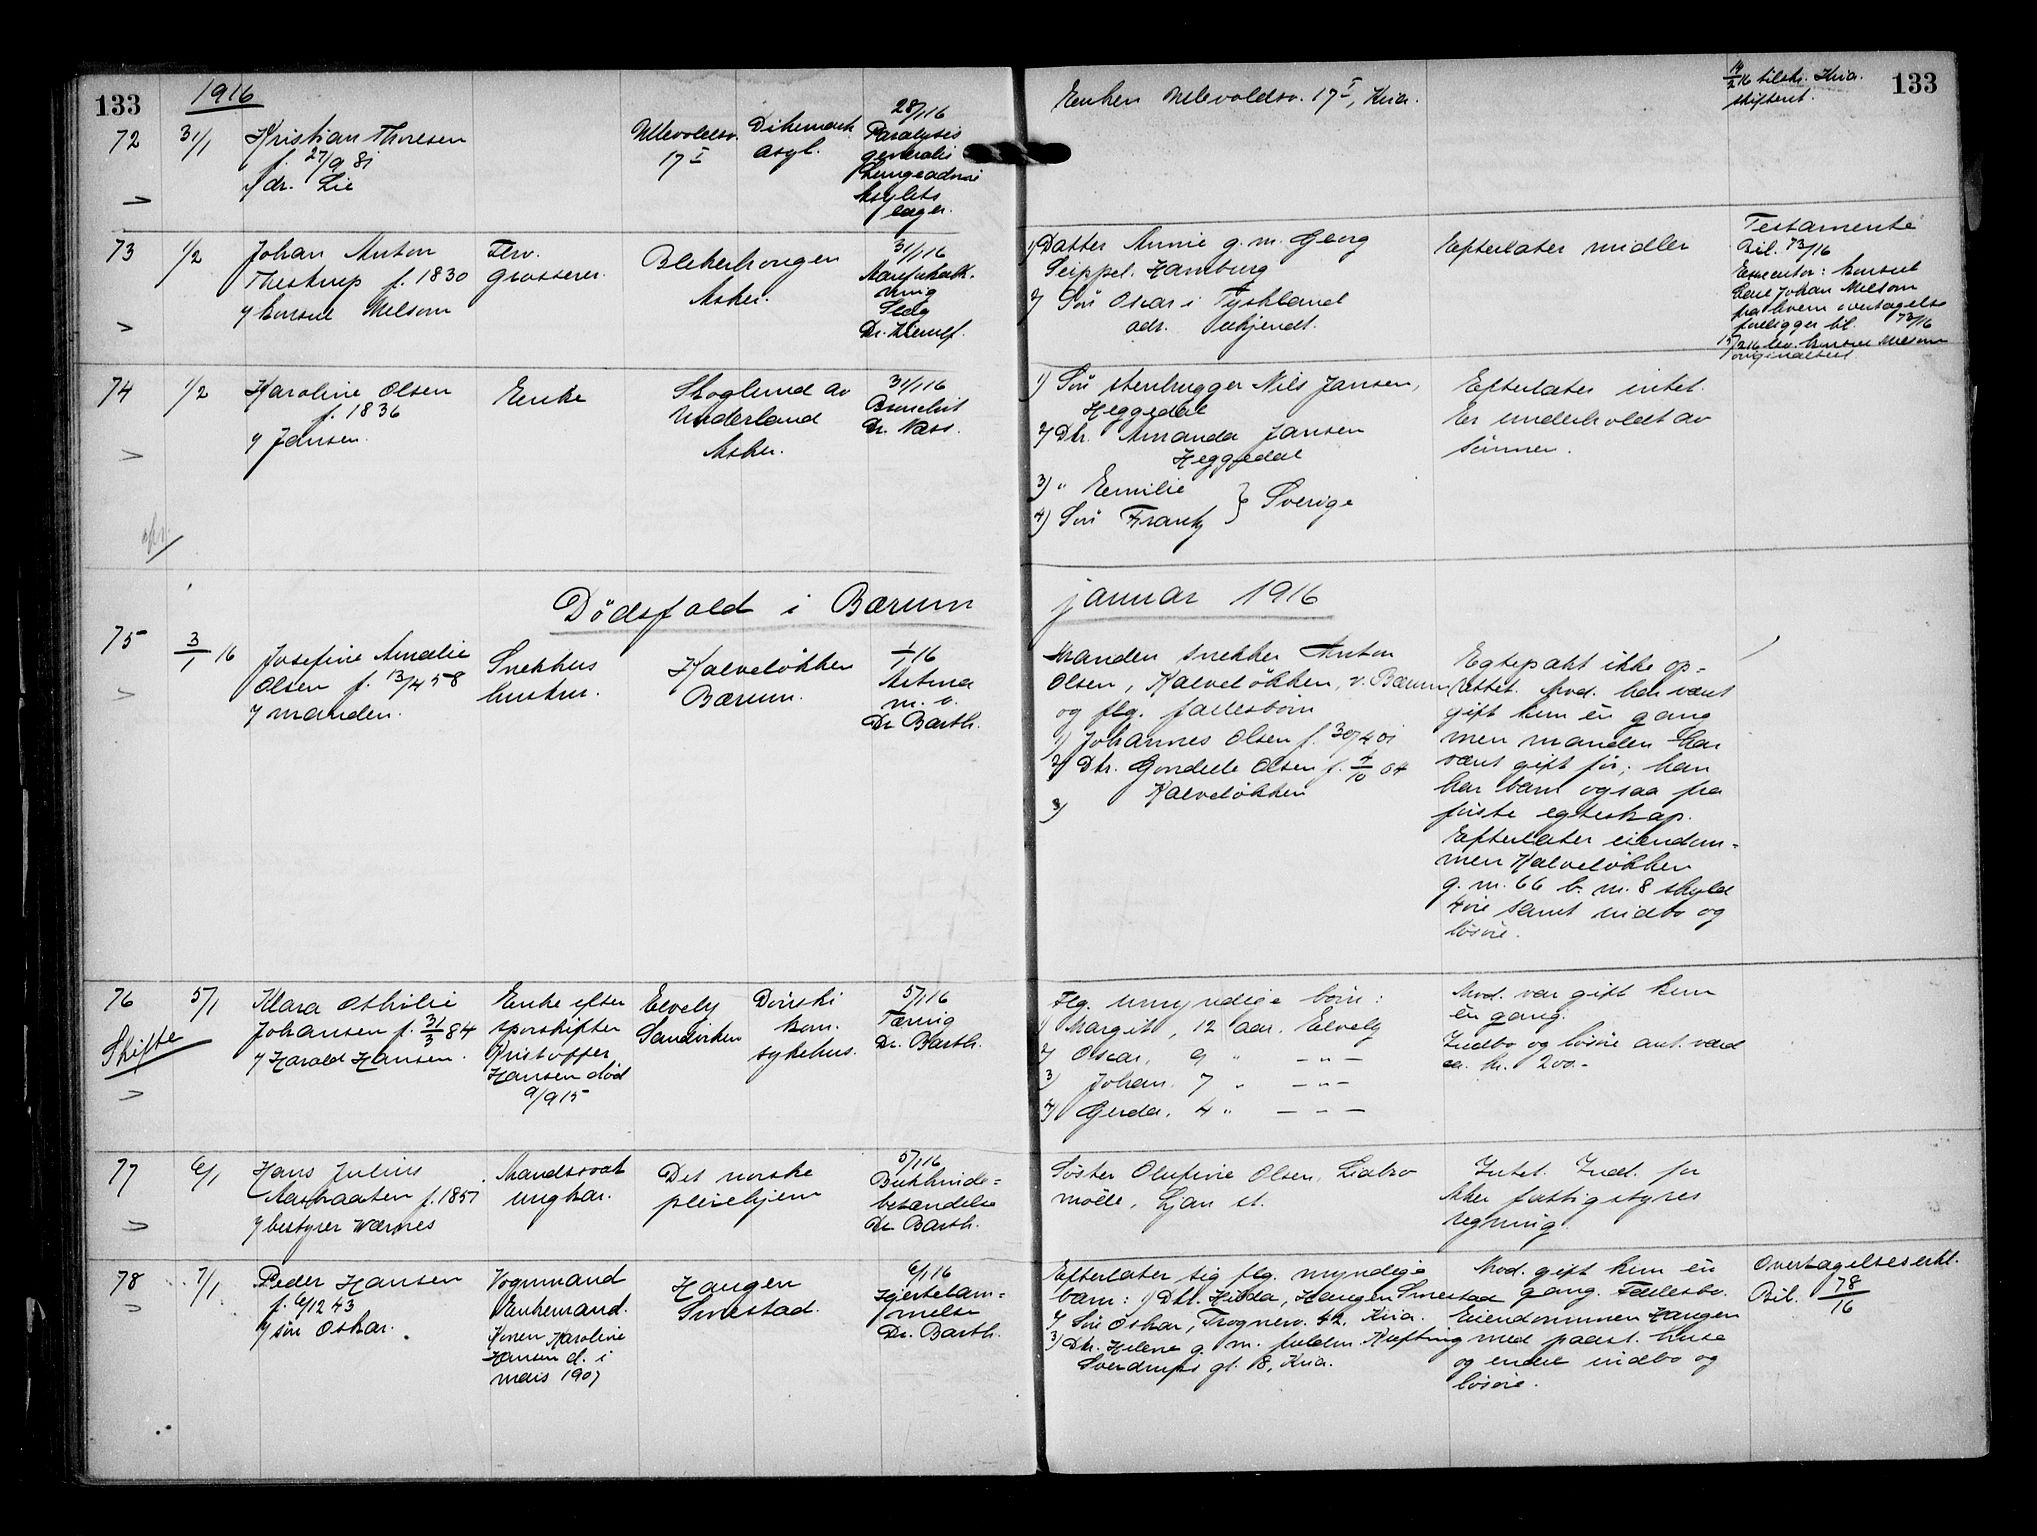 133
1916
72
31/1
Kristian Thoresen
f. 27/9 81
v/ dr. Lie
Ullevoldsv.
17 I
Dikemark
asyl.
28/1 16
Paralysis
generalis
Asylets
læge.
Enken Ullevoldsv. 17 I, Kria.
14/2 16 tilskr. Kria.
skifteret.
133
73
1/2
Johan Anton
Thestrup f. 1830
v/ konsul Melsom
Fhv.
grosserer.
Blekerhougen
Asker.
31/1 16
Aareforkalk-
ning
Slag
1) Datter Annie g. m. Georg
Seippel. Hamburg
2) Søn Oscar i Tyskland
adr. ukjendt.
Efterlater midler
Testamente
Bil. 73/16
Executor: konsul
Carl Johan Melsom
fra hvem overtagelse
foreligger bil. 73/16
15/2 16 lev. konsul Melsom
originaltest.
74
1/2
Karoline Olsen
f. 1836
v/ Jansen.
Enke
Skoglund av
Underland
Asker.
31/1 16
Bronchit
Dr. Næss.
1) Søn stenhugger Nils Jansen,
Heggedal
2) Dtr. Amanda Jansen
Heggedal
3) " Emilie
4) Søn Frantz } Sverige
Efterlater intet.
Er underholdt av
sønnen.
Dødsfald i Bærum
januar 1916
75
3/1 16
Josefine Amalie
Olsen f. 13/4 58
v/ manden.
Snekkers
hustru.
Kalveløkken
Bærum.
1/1 16
Astma
m. v.
Dr. Barth.
Manden snekker Anton
Olsen, Kalveløkken, v. Bærum
og flg. fællesbørn
1) Johannes Olsen f. 30/4 01
2) Dtr. Gundelle Olsen f. 4/10 04
Kalveløkken
3)
Egtepakt ikke op-
rettet. Avd. har vært
gift kun én gang
men manden har
vært gift før; han
har barn ogsaa fra
første egteskap.
Efterlater eiendom-
men Kalveløkken
g. nr. 66 b. nr. 8 skyld
4 øre samt indbo og
løsøre.
76
Skifte
5/1
Klara Othilie
Johansen f. 31/3 84
v/ Harald Hansen.
Enke efter
sporskifter
Kristoffer
Hansen død
9/9 15
Elvely
Sandviken
Dønski
kom.
sykehus.
5/1 16
Tæring
Dr. Barth.
Flg. umyndige børn:
1) Margit, 12 aar. Elvely
2) Oscar, 9 " — " —
3) Johan. 7 " — " —
4) Gerda. 4 " — " —
Avd. var gift kun
én gang.
Indbo og løsøre ant. værd
ca. kr. 200.-
77
6/1
Hans Julius
Aasbraaten f. 1857
v/ bestyrer Wærnes
Mandssvak
ungkar.
Det norske
pleiehjem
5/1 16
Bukhinde-
betændelse
Dr. Barth.
Søster Olufine Olsen, Liabro
mølle, Ljan st.
Intet. Indl. for
Aker fattigstyres
regning.
78
7/1
Peder Hansen
f. 6/12 43
v/ søn Oskar.
Vognmand
Enkemand.
Konen Karoline
Hansen d. i
mars 1907
Haugen
Smestad.
6/1 16
Hjertelam-
melse
Dr. Barth.
Efterlater sig flg. myndige
barn: 1) Dtr. Hilda, Haugen Smestad
2) Søn Oskar, Frognerv. 42, Kria.
3) Dtr. Helene g. m. fuldm. Kæfting
Sverdrups gt. 18, Kria.
Avd. gift kun én
gang. Fællesbo.
Eiendommen Haugen
med paast. huse
og endel indbo og
løsøre.
Overtagelseserkl.
Bil. 78/16